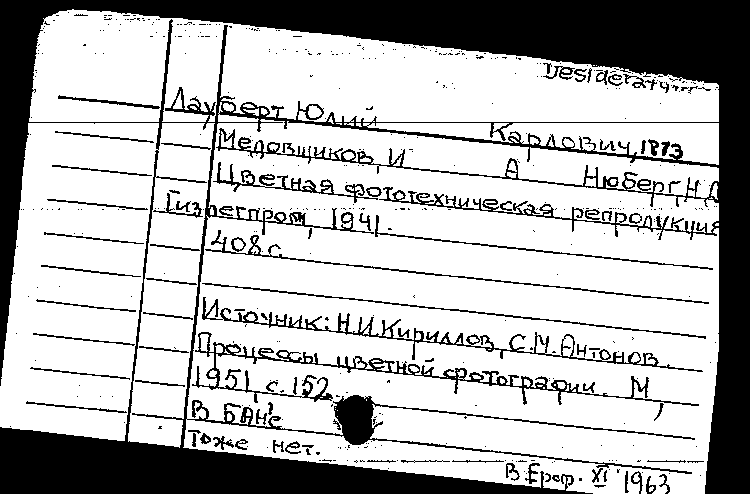 Desideratum
Лауберт, Юлий Карлович, 1873
Медовщиков, И А Нюберг, Н.Д
Цветная фототехническая репродукция
Гизлегпром, 1941.
408 с.
Источник: Н.И.Кириллов, С.М.Антонов.
Процессы цветной фотографии. М,
1951, с. 152.
В БАН'е
тоже нет.
В.Ероф. XI 1963